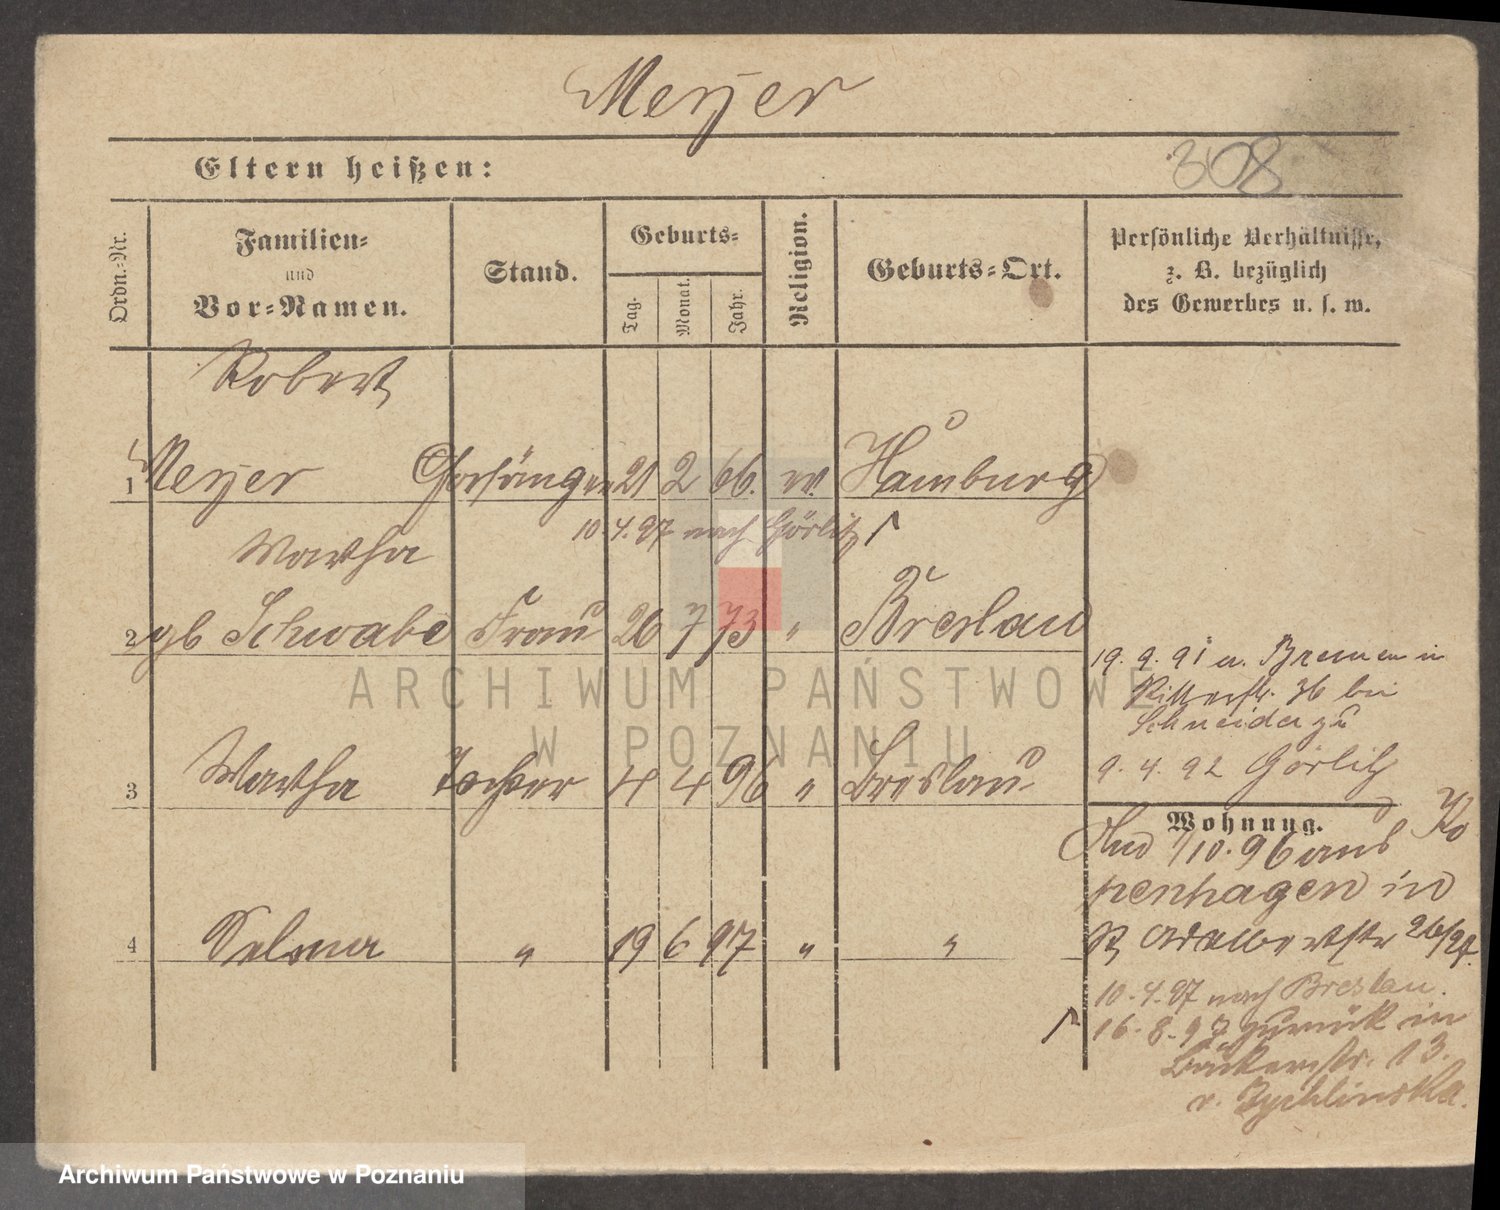 Meyer
Eltern heißen:
308
Ordn.-Nr.
Familien-
und
Vor-Namen.
Stand.
Geburts-
Tag.
Monat.
Jahr.
Religion.
Geburts-Ort.
Persönliche Verhältnisse,
z. B. bezüglich
des Gewerbes u. s. w.
Robert
1 Meyer 21 2 66. Hamburg
10.4.97 nach Görlitz
Martha
2 gb Schwabe Frau 26 7 73 " Breslau
19. 9. 91 a. Bremen in
Ritterstr. 36 bei
Schneider zu
9. 4. 92 Görlitz
3 Martha Tochter 4 4 96 " Breslau
Wohnung.
Und 1/10.96 aus Ko
penhagen in
4 Selma " 19 6 97 " "
Adalbertstr 26/27.
10.4.97 nach Breslau.
16.8.97 zurück in
Bäckerstr. 13.
v. Zychlinska.
ARCHIWUM PAŃSTWOWE
W POZNANIU
Archiwum Państwowe w Poznaniu